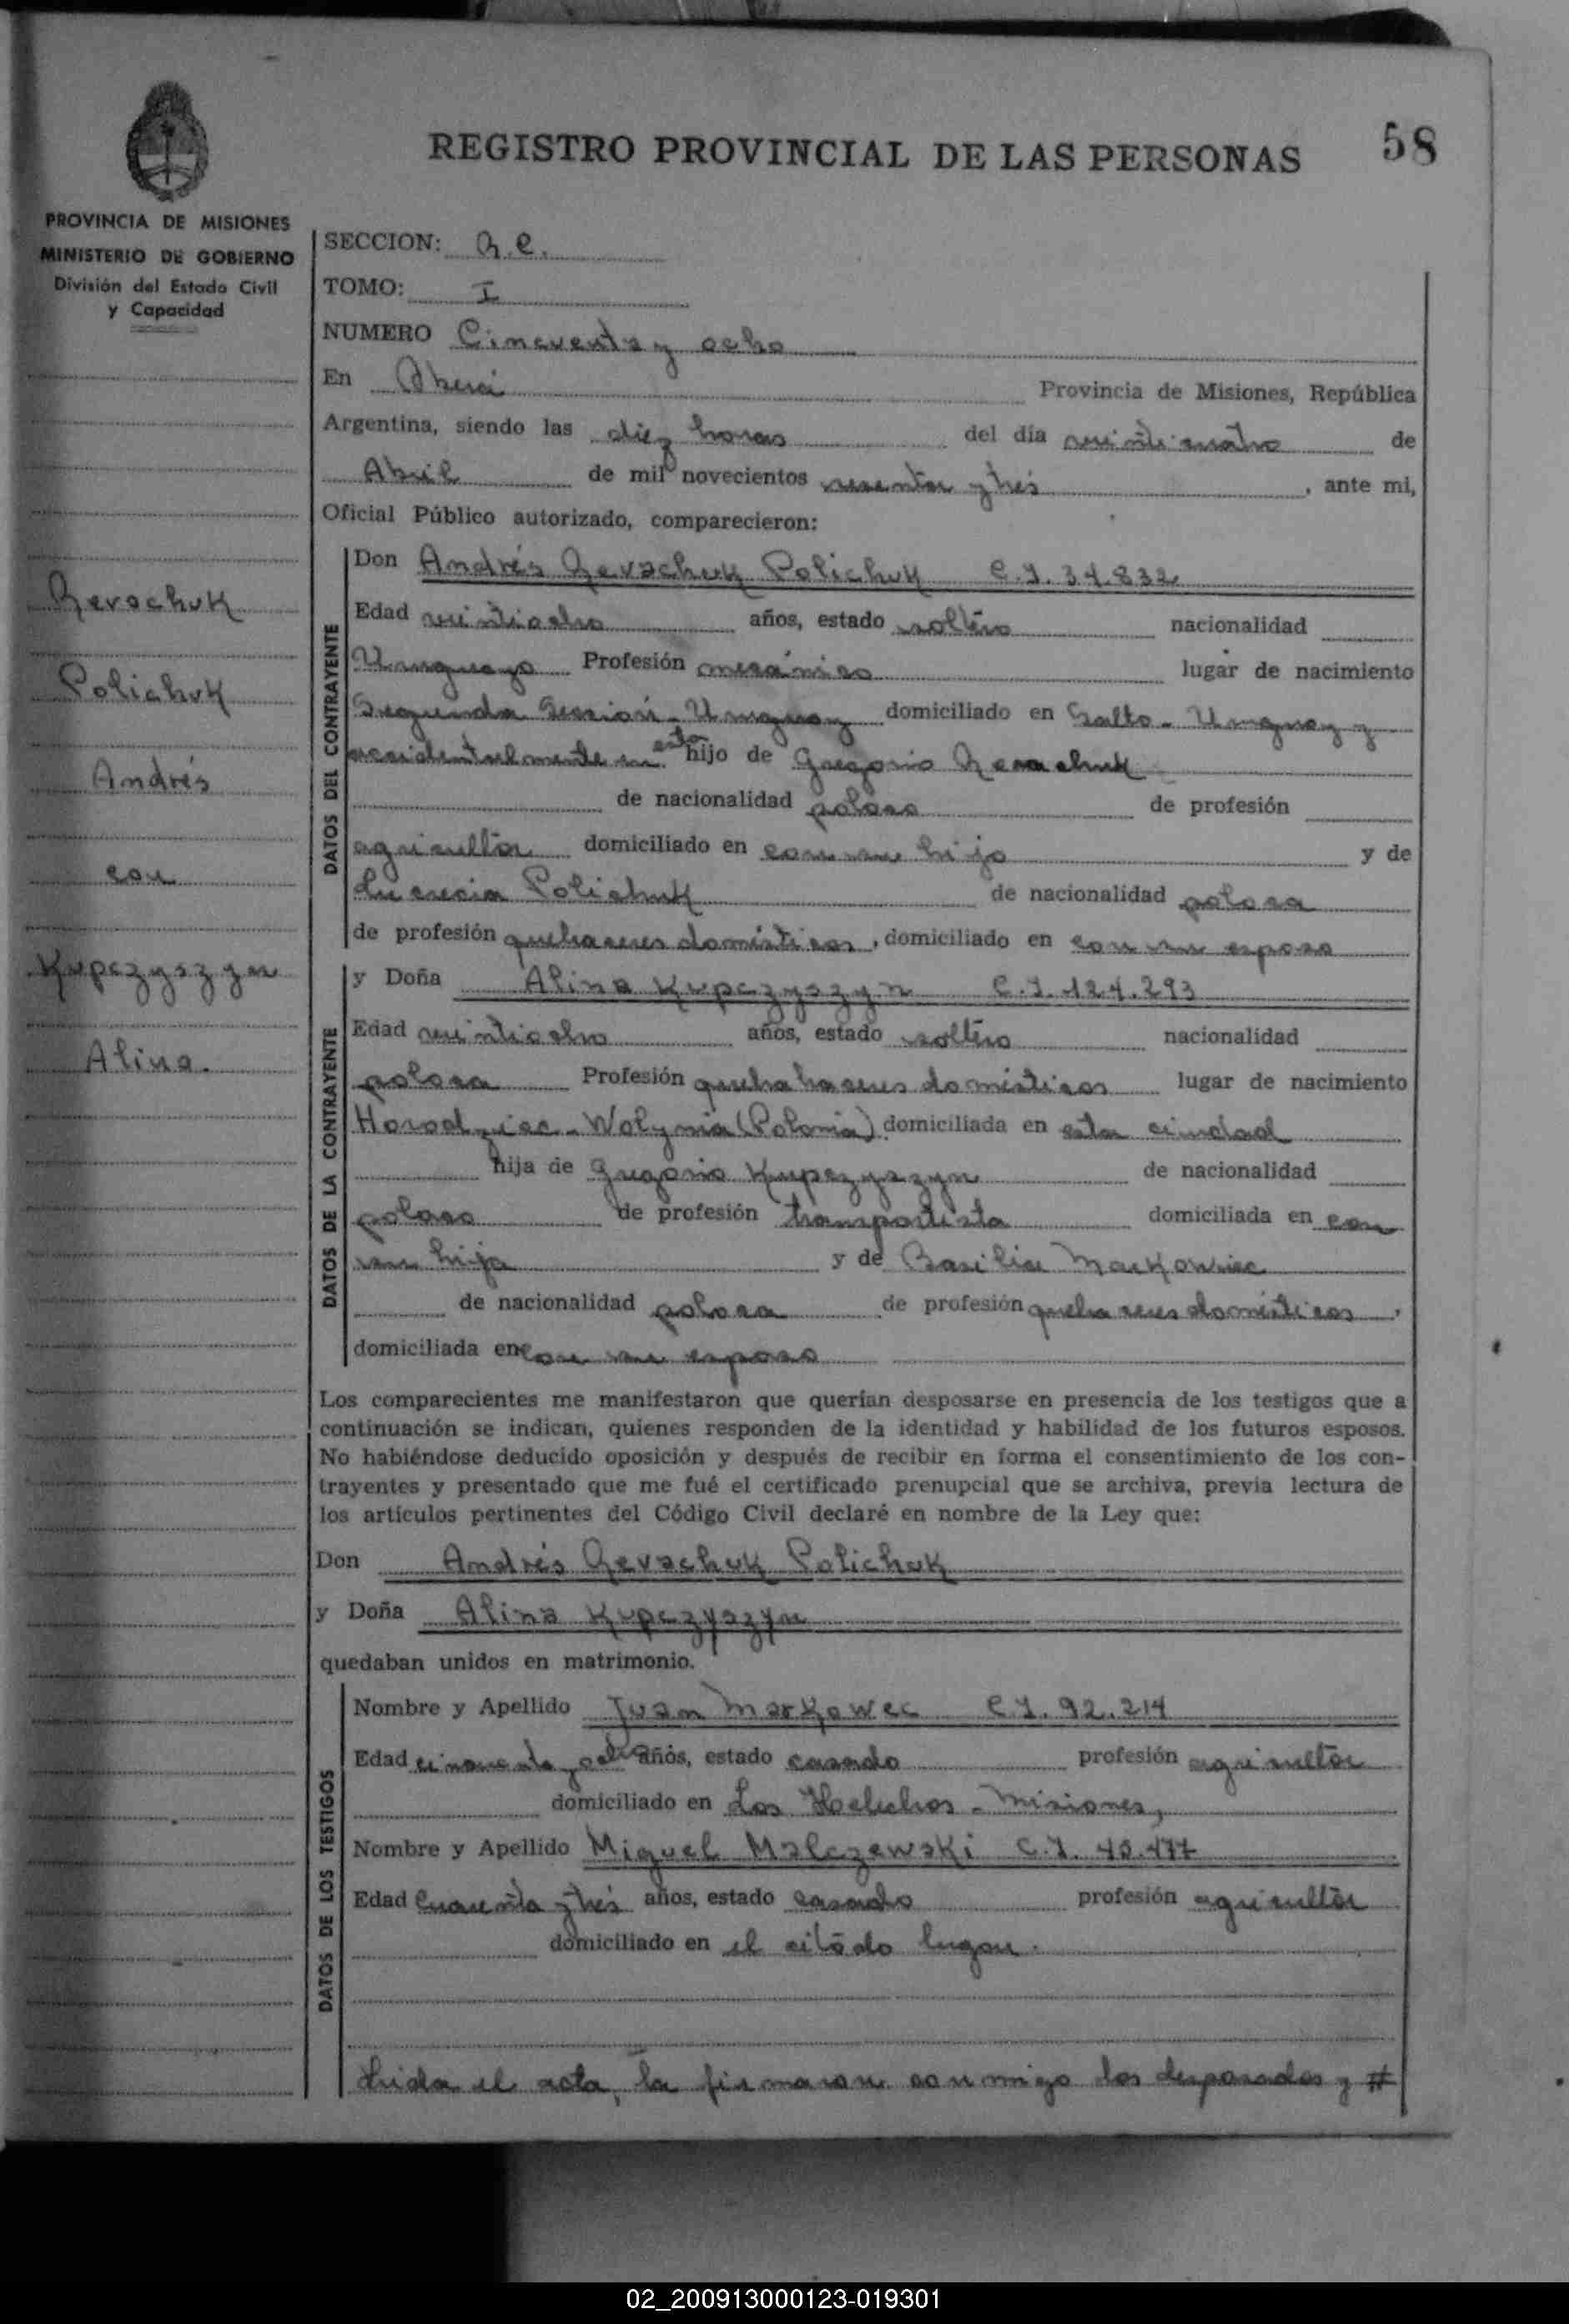 REGISTRO PROVINCIAL DE LAS PERSONAS 58
PROVINCIA DE MISIONES
MINISTERIO DE GOBIERNO
División del Estado Civil
y Capacidad
Gerachuk
Polichuk
Andrés
con
Kupczyszyn
Alina.
SECCION:
TOMO: I
NUMERO Cincuenta y ocho
En Oberá Provincia de Misiones, República
Argentina, siendo las diez horas del día veinticuatro de
Abril de mil novecientos sesenta y trés, ante mi,
Oficial Público autorizado, comparecieron:
DATOS DEL CONTRAYENTE
Don Andrés Gerachuk Polichuk C.I. 34.832
Edad veintiocho años, estado soltero nacionalidad
Uruguayo Profesión mecánico lugar de nacimiento
Segunda Sección - Uruguay domiciliado en Salto - Uruguay y
accidentalmente en esta hijo de Gregorio Gerachuk
de nacionalidad polaco de profesión
agricultor domiciliado en con su hijo y de
Lucrecia Polichuk de nacionalidad polaca
de profesión quehaceres domésticos, domiciliado en con su esposo
DATOS DE LA CONTRAYENTE
y Doña Alina Kupczyszyn C.I. 124.293
Edad veintiocho años, estado soltera nacionalidad
polaca Profesión quehaceres domésticos lugar de nacimiento
Horodziec - Wolynia (Polonia) domiciliada en esta ciudad
hija de Gregorio Kupczyszyn de nacionalidad
polaco de profesión transportista domiciliada en con
su hija y de Basilia Markowiec
de nacionalidad polaca de profesión quehaceres domésticos,
domiciliada en con su esposo
Los comparecientes me manifestaron que querían desposarse en presencia de los testigos que a
continuación se indican, quienes responden de la identidad y habilidad de los futuros esposos.
No habiéndose deducido oposición y después de recibir en forma el consentimiento de los con-
trayentes y presentado que me fué el certificado prenupcial que se archiva, previa lectura de
los artículos pertinentes del Código Civil declaré en nombre de la Ley que:
Don Andrés Gerachuk Polichuk
y Doña Alina Kupczyszyn
quedaban unidos en matrimonio.
DATOS DE LOS TESTIGOS
Nombre y Apellido Juan Markowec C.I. 92.214
Edad cincuenta y ocho años, estado casado profesión agricultor
domiciliado en Los Helechos - Misiones,
Nombre y Apellido Miguel Malczewski C.I. 40.477
Edad cuarenta y trés años, estado casado profesión agricultor
domiciliado en el citado lugar.
Leida el acta, la firmaron conmigo los desposados y #
02_200913000123-019301